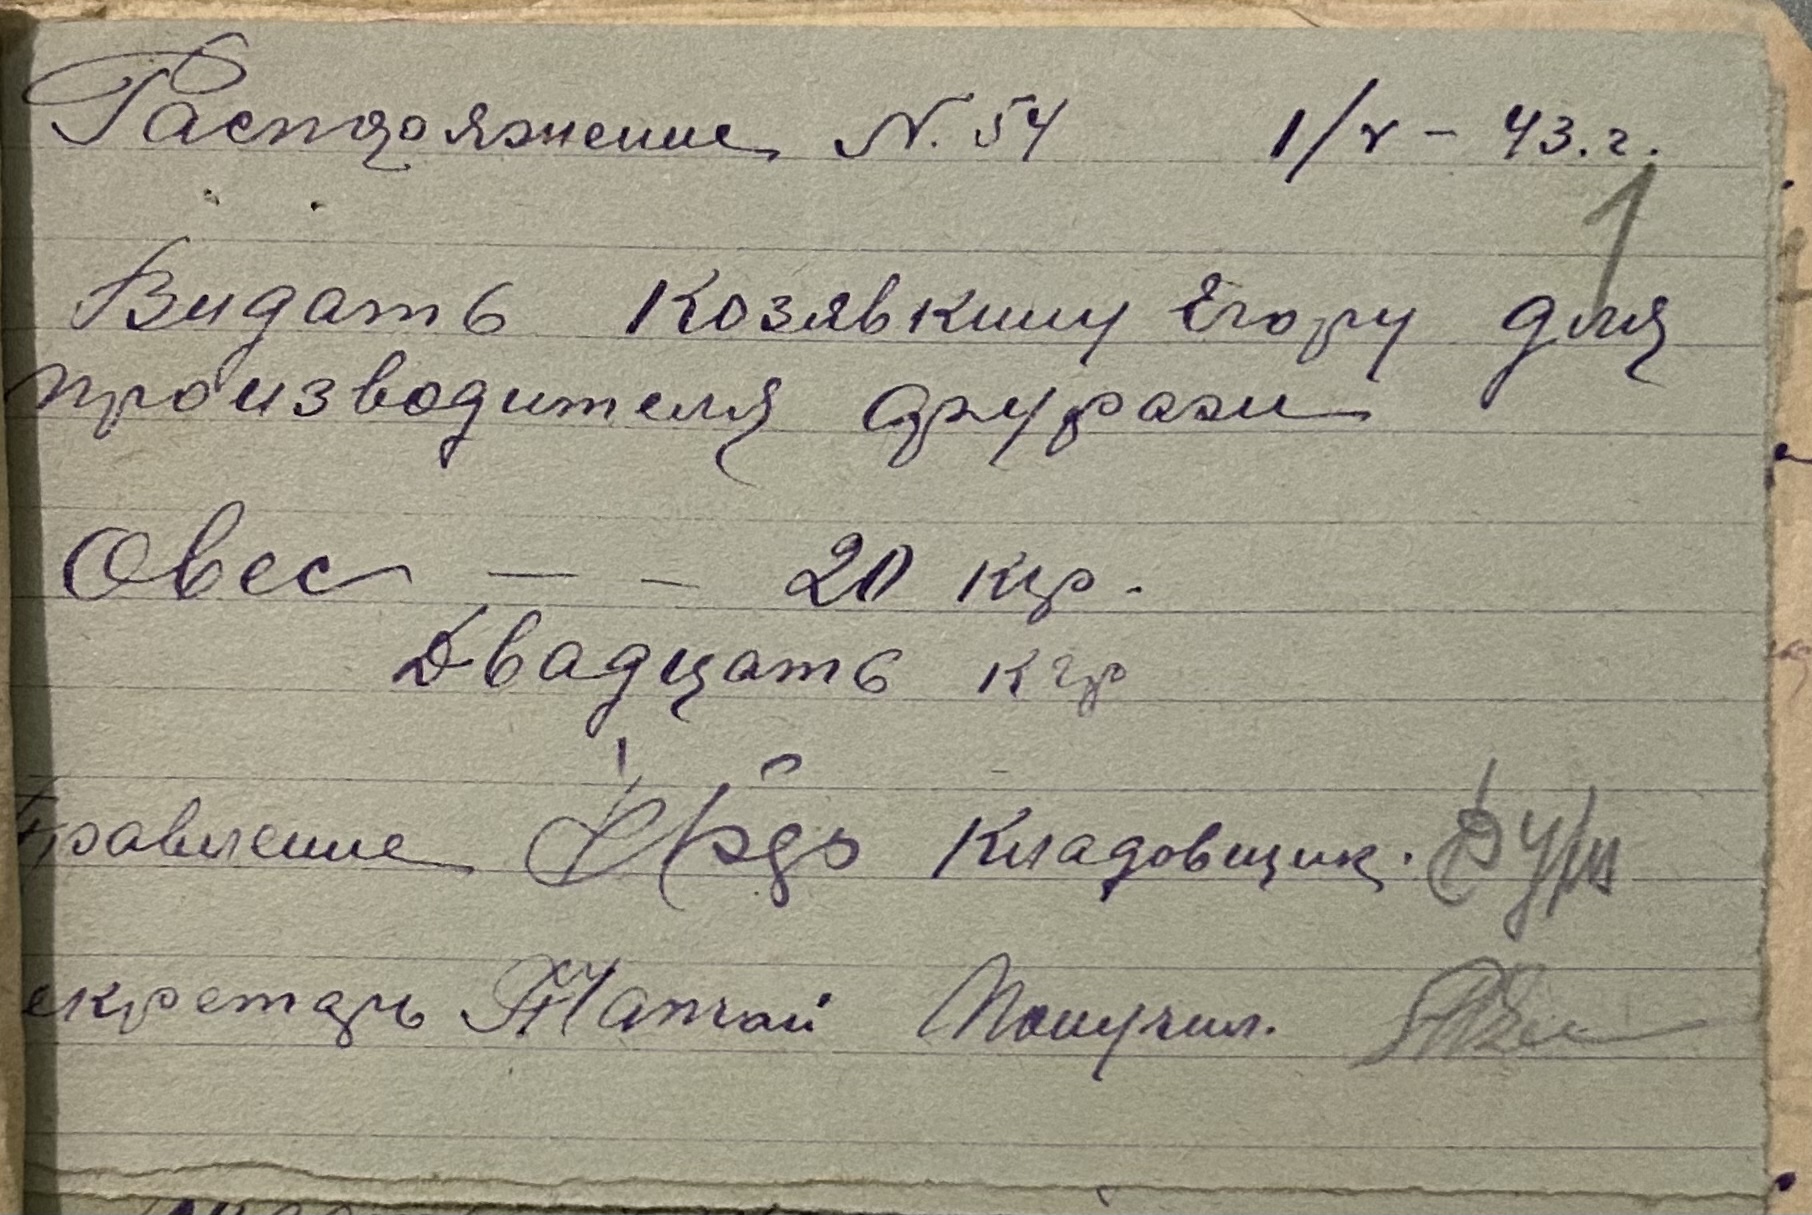 Распоряжение N. 54 1/V - 43.г.
1
Видать Козявкину Егору для
производителя фуражи
Овес — — 20 кгр.
Двадцать кгр
Правление Кладовщик.
екретарь Получил.